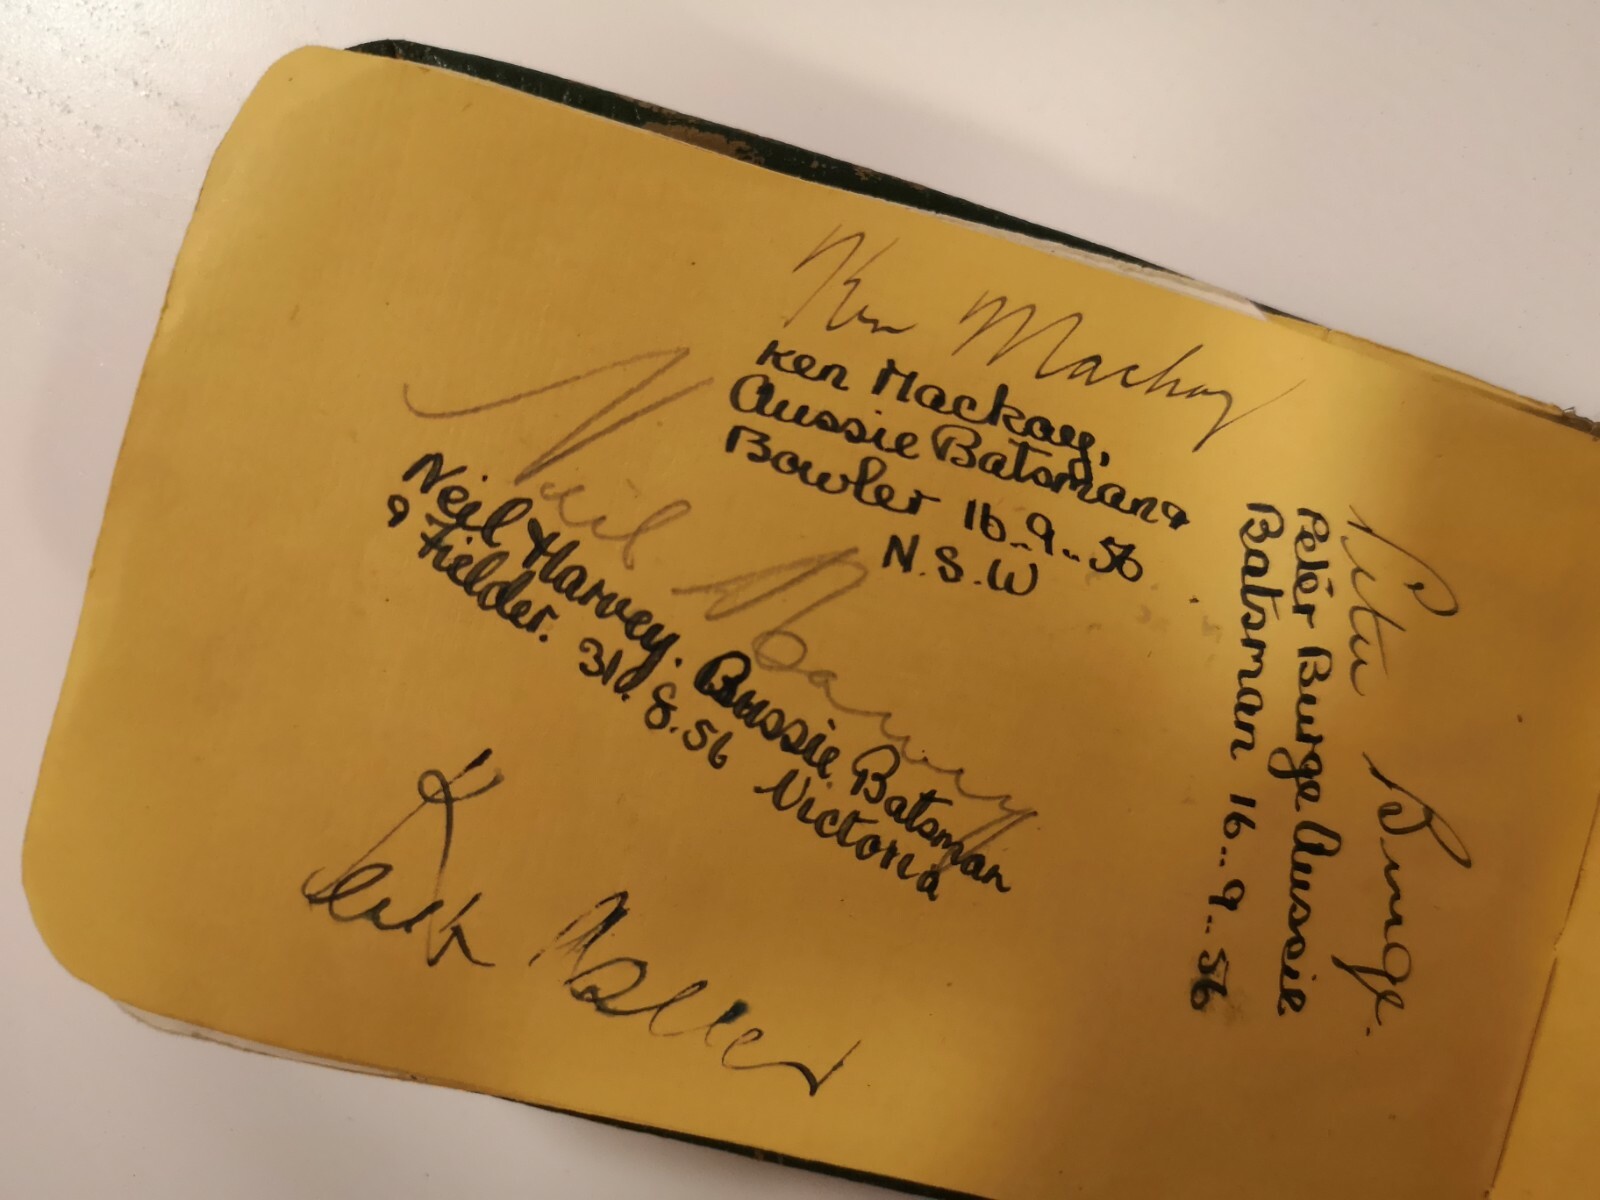 Ken Mackay
Ken Mackay,
Aussie Batsman &
Bowler 16..9..56
N.S.W
Neil Harvey
Neil Harvey. Aussie Batsman
& Fielder. 31. 8. 56 Victoria
Keith Miller
Peter Burge.
Peter Burge Aussie
Batsman 16..9..56